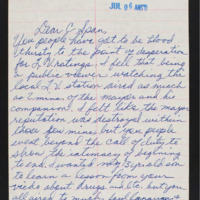 JUL 06
Dear C-Span,
You people have got to be blood
thirsty to the point of desperation
for T.V. ratings. I felt that being
a public viewer watching the
local T.V. station aired as much
as 2 mins of the mayor and his
companion. I felt like the major
reputation was destroyed within
those few mins but you people
went beyond the call of duty to
show the intimacy of
to end. I
to learn a lesson from your
video about drugs and etc. but you
all aired to much